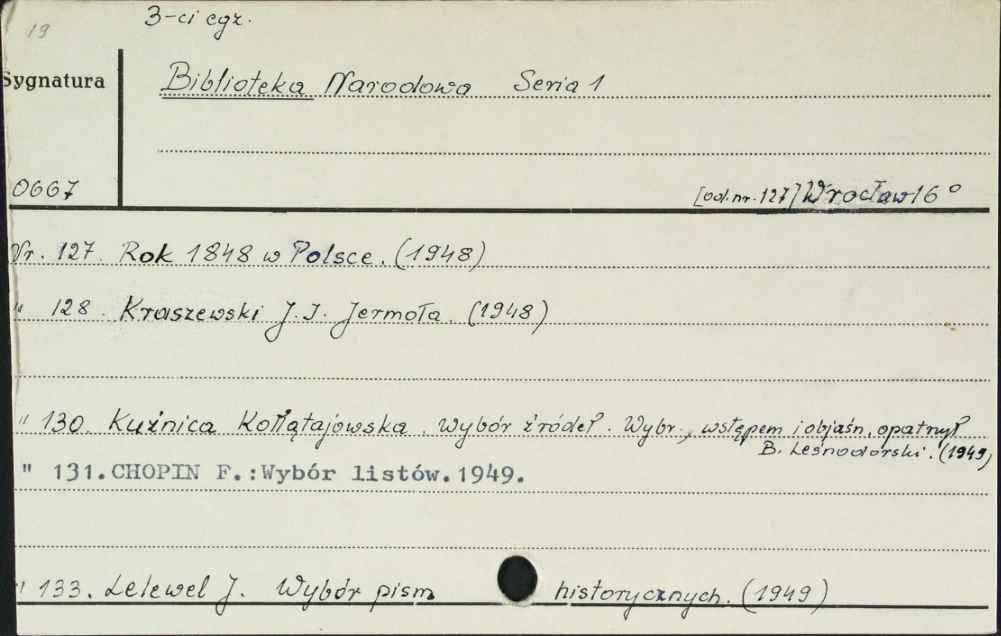 19
3-ci egz.
Sygnatura
Biblioteka Narodowa Seria 1
0667
[od.nr.127] Wrocław 16°
Nr. 127. Rok 1848 w Polsce. (1948)
" 128. Kraszewski J.I. Jermoła. (1948)
" 130 Kuźnica Kołłątajowska. Wybór źródeł. Wybr., wstępem i objaśn. opatrzył
B. Leśnodorski. (1949)
" 131.CHOPIN F.:Wybór listów.1949.
" 133. Lelewel J. Wybór pism historycznych. (1949)